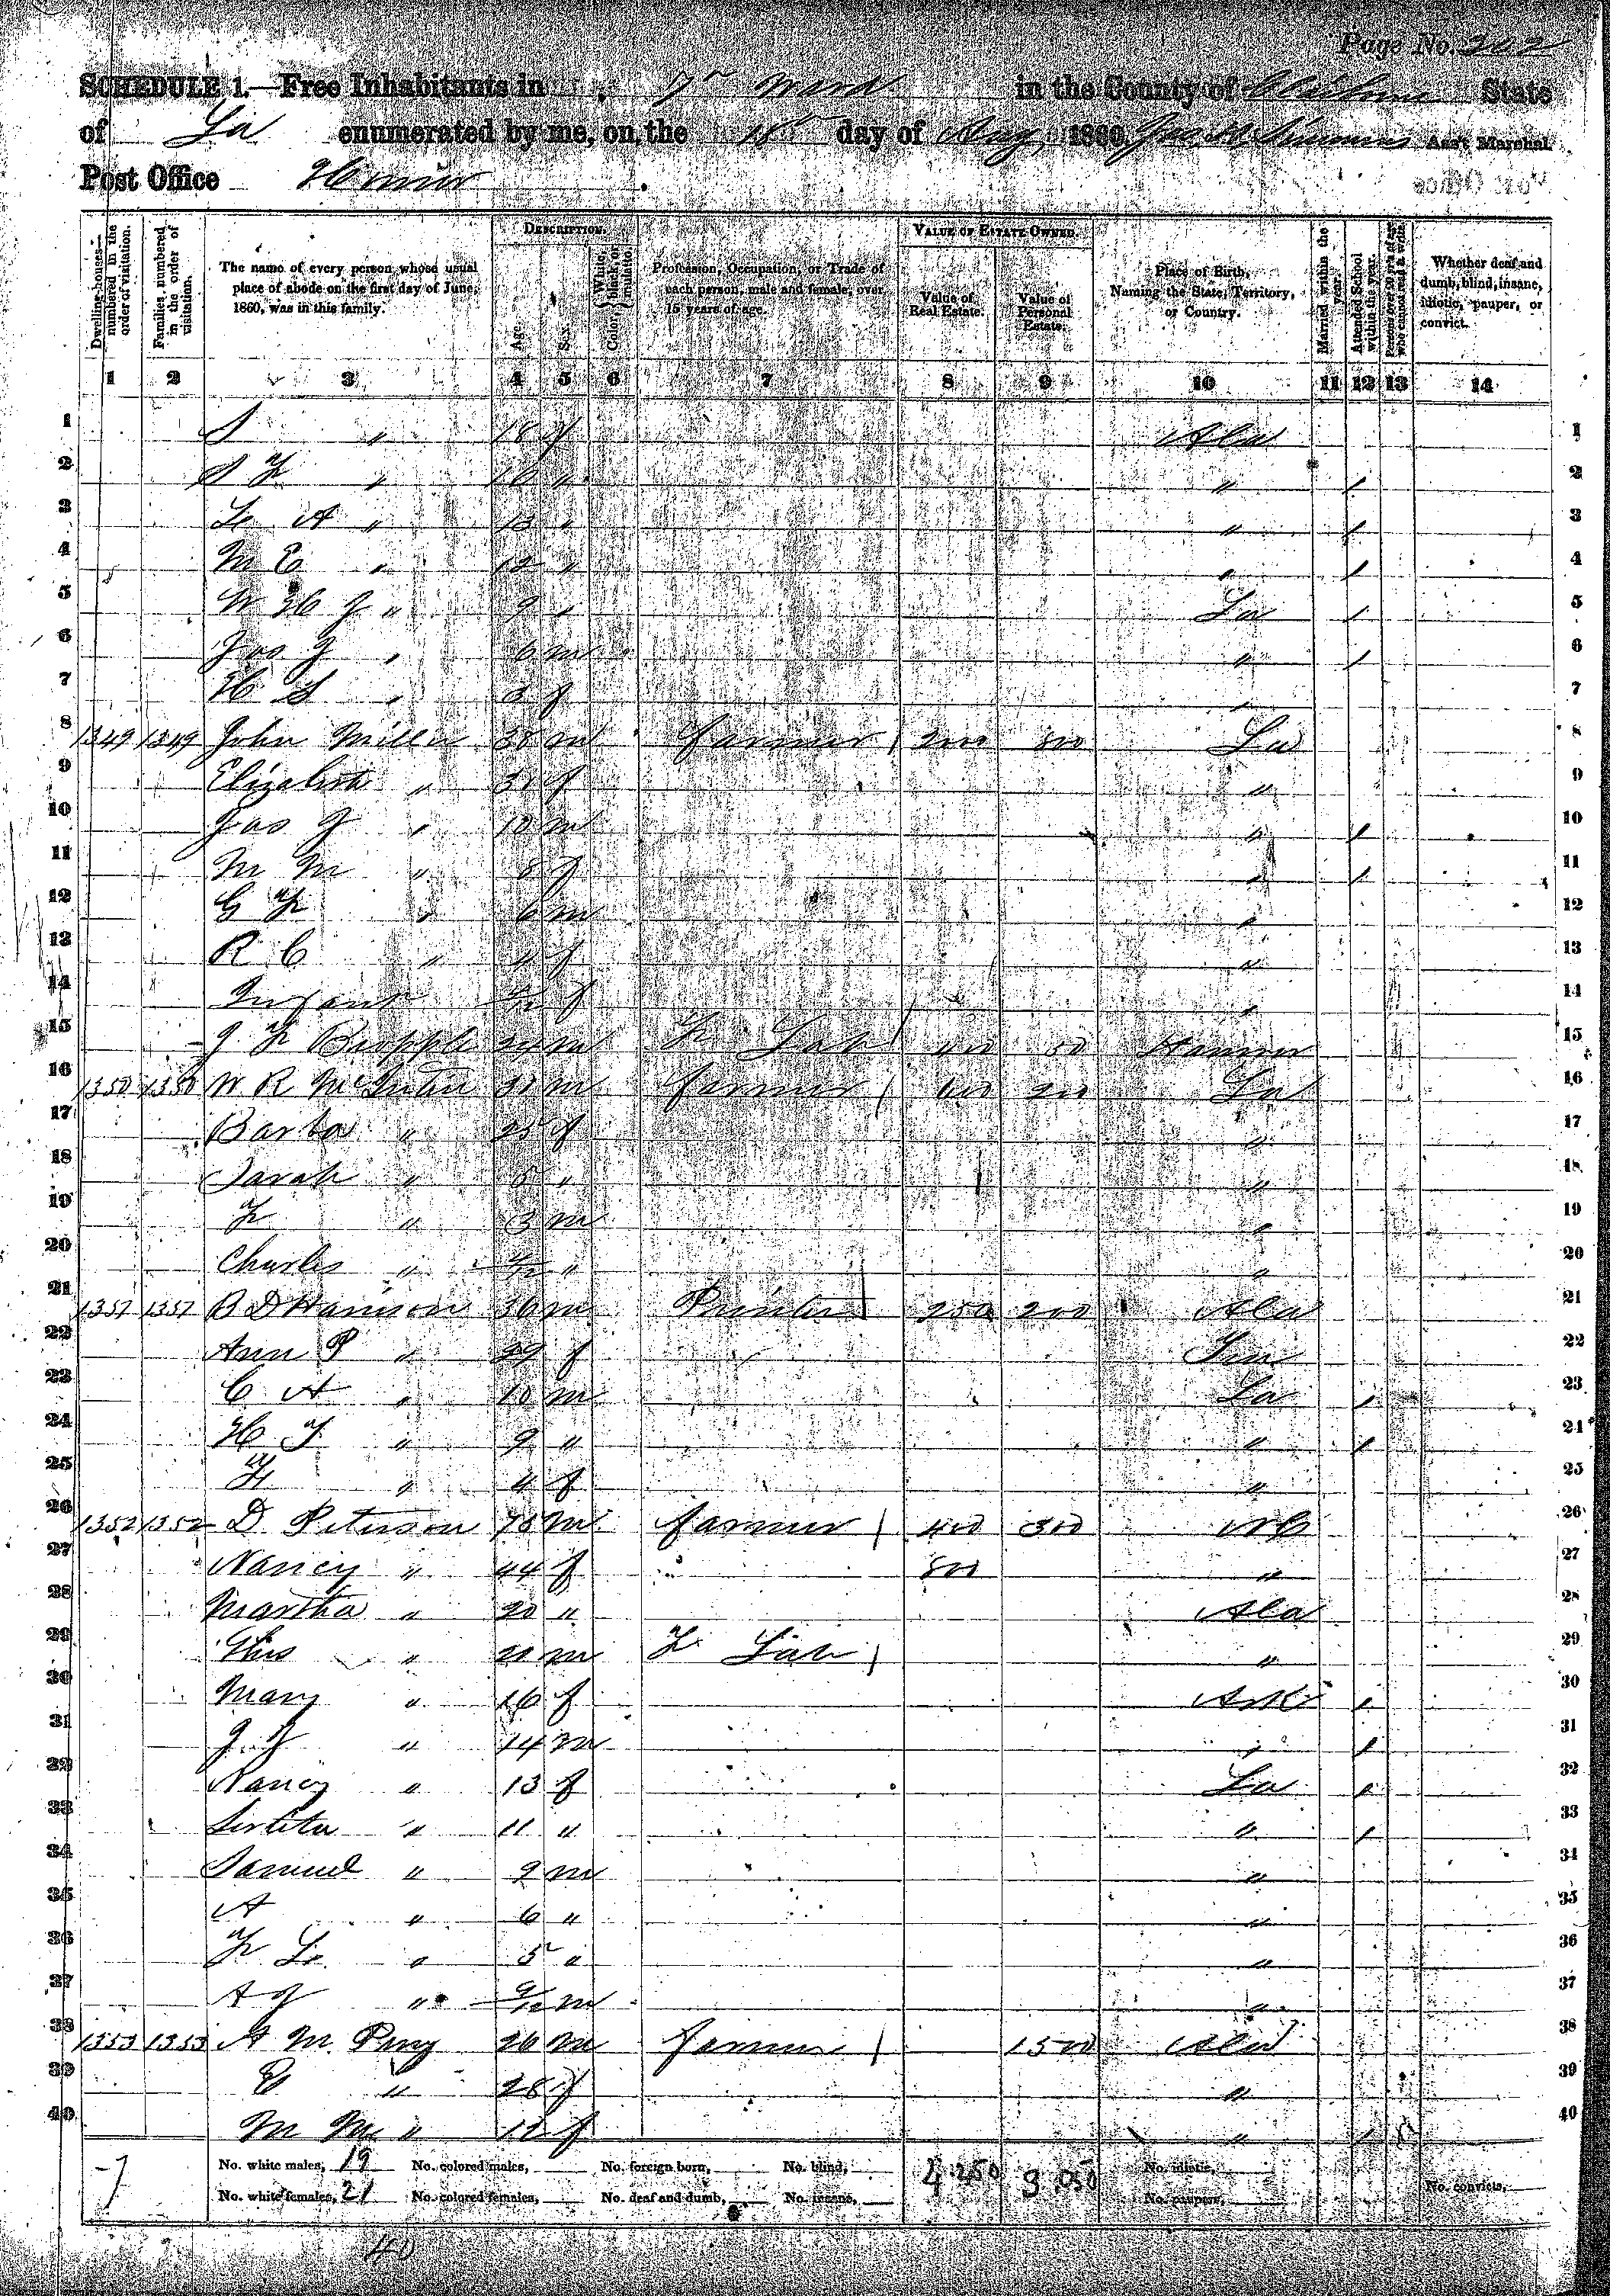 Page No. 202
SCHEDULE 1.—Free Inhabitants in 7th Ward in the County of Claiborne State
of La enumerated by me, on the 18th day of Aug 1860. Ass't Marshal
Post Office Homer
DESCRIPTION. VALUE OF ESTATE OWNED.
Dwelling-houses—numbered in the order of visitation.
Families numbered in the order of visitation.
The name of every person whose usual place of abode on the first day of June, 1860, was in this family.
Age.
Sex.
Color, White, black, or mulatto.
Profession, Occupation, or Trade of each person, male and female, over 15 years of age.
Value of Real Estate.
Value of Personal Estate.
Place of Birth, Naming the State, Territory, or Country.
Married within the year.
Attended School within the year.
Persons over 20 y'rs of age who cannot read & write.
Whether deaf and dumb, blind, insane, idiotic, pauper, or convict.
1 2 3 4 5 6 7 8 9 10 11 12 13 14
1 S " 18 f Ala 1
2 S F " 16 " " / 2
3 L A " 13 " " / 3
4 M E " 12 " " / 4
5 W H J " 9 " La / 5
6 Jas J " 6 m " / 6
7 H S " 3 f " 7
8 1349 1349 John Miller 38 m Farmer / 2000 800 La 8
9 Elizabeth " 31 f " 9
10 Jas J " 10 m " / 10
11 M M " 8 f " / 11
12 G F " 6 m " 12
13 R C " f " 13
14 Infant /12 f " 14
15 J F 24 m F Lab / 400 50 15
16 1350 1350 W R 31 m Farmer / 400 200 La 16
17 Barba " 25 f " 17
18 Sarah " 5 " " 18
19 F " 3 m " 19
20 Charles " /12 " " 20
21 1351 1351 B D Harrison 36 m 250 200 Ala 21
22 Ann P " 29 f 22
23 C A " 10 m La / 23
24 H J " 9 " " / 24
25 F " 4 f " 25
26 1352 1352 D Peterson 70 m Farmer / 400 300 NC 26
27 Nancy " 44 f 800 " 27
28 Martha " 20 " Ala 28
29 " 21 m F Lab / " 29
30 Mary " 16 f Ark / 30
31 J J " 14 m " / 31
32 Nancy " 13 f La / 32
33 " 11 " " / 33
34 Samuel " 9 m " 34
35 A " 6 " " 35
36 F L " 5 " " 36
37 A J " 9/12 m " 37
38 1353 1353 A M Perry 26 m Farmer / 1500 Ala 38
39 E " 28 f " 39
40 M M " 12 f " / 40
No. white males, 19 No. colored males, No. foreign born, No. blind, 4,250 9,050 No. idiotic,
No. white females, 21 No. colored females, No. deaf and dumb, No. insane, No. paupers, No. convicts,
40